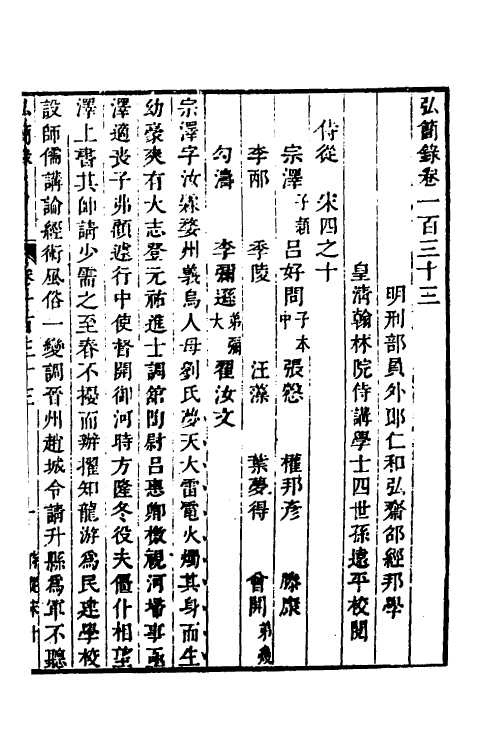 弘簡錄卷一百三十三
明刑部員外郎仁和弘齋邵經邦學
皇清翰林院侍講學士四世孫遠平校閱
侍從 宋四之十
宗澤子穎 呂好問子本中 張慤 權邦彥 滕康
李邴 季陵 汪藻 葉夢得 曾開弟幾
勾濤 李彌遜弟彌大 翟汝文
宗澤字汝霖婺州義烏人母劉氏夢天大雷電火燭其身而生
幼豪爽有大志登元祐進士調館陶尉呂惠卿檄視河埽事亟
澤適喪子弗顧遽行中使督開御河時方隆冬役夫僵仆相望
澤上書其帥請少需之至春不擾而辦擢知龍游為民建學校
設師儒講論經術風俗一變調晉州趙城令請升縣為軍不聽
弘簡錄
卷一百三十三
一